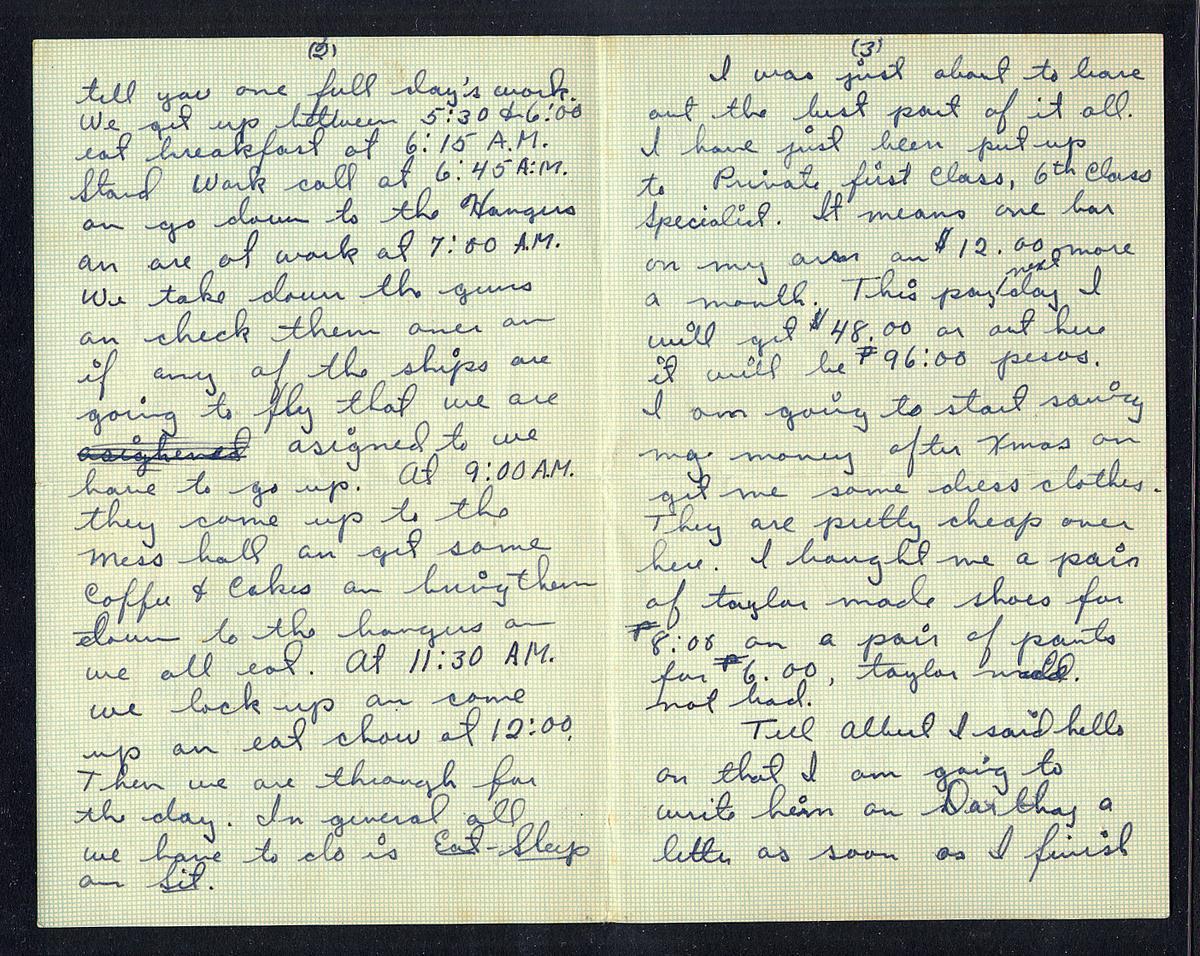 (2)
tell you one full day's work.
We get up between 5:30 & 6:00
eat breakfast at 6:15 A.M.
Stand Work call at 6:45 A.M.
an go down to the Hangers
an are at work at 7:00 A.M.
We take down the guns
an check them over an
if any of the ships are
going to fly that we are
asigned to we
have to go up. At 9:00 A.M.
they come up to the
Mess hall an get some
Coffee & Cakes an bring them
down to the hangers an
we all eat. At 11:30 A.M.
we lock up an come
up an eat chow at 12:00.
Then we are through for
the day. In general all
we have to do is Eat-Sleep
an Sit.
(3)
I was just about to leave
out the best part of it all.
I have just been put up
to Private first Class, 6th Class
Specialist. It means one bar
on my arm an $12.00 more
a month. This pay next day I
will get $48.00 or out here
it will be ₱96:00 pesos.
I am going to start saving
my money after Xmas an
get me some dress clothes.
They are pretty cheap over
here. I bought me a pair
of taylor made shoes for
₱8:00 an a pair of pants
for ₱6.00, taylor made.
not bad.
Tell Albert I said hello
an that I am going to
write him an Dorthay a
letter as soon as I finish